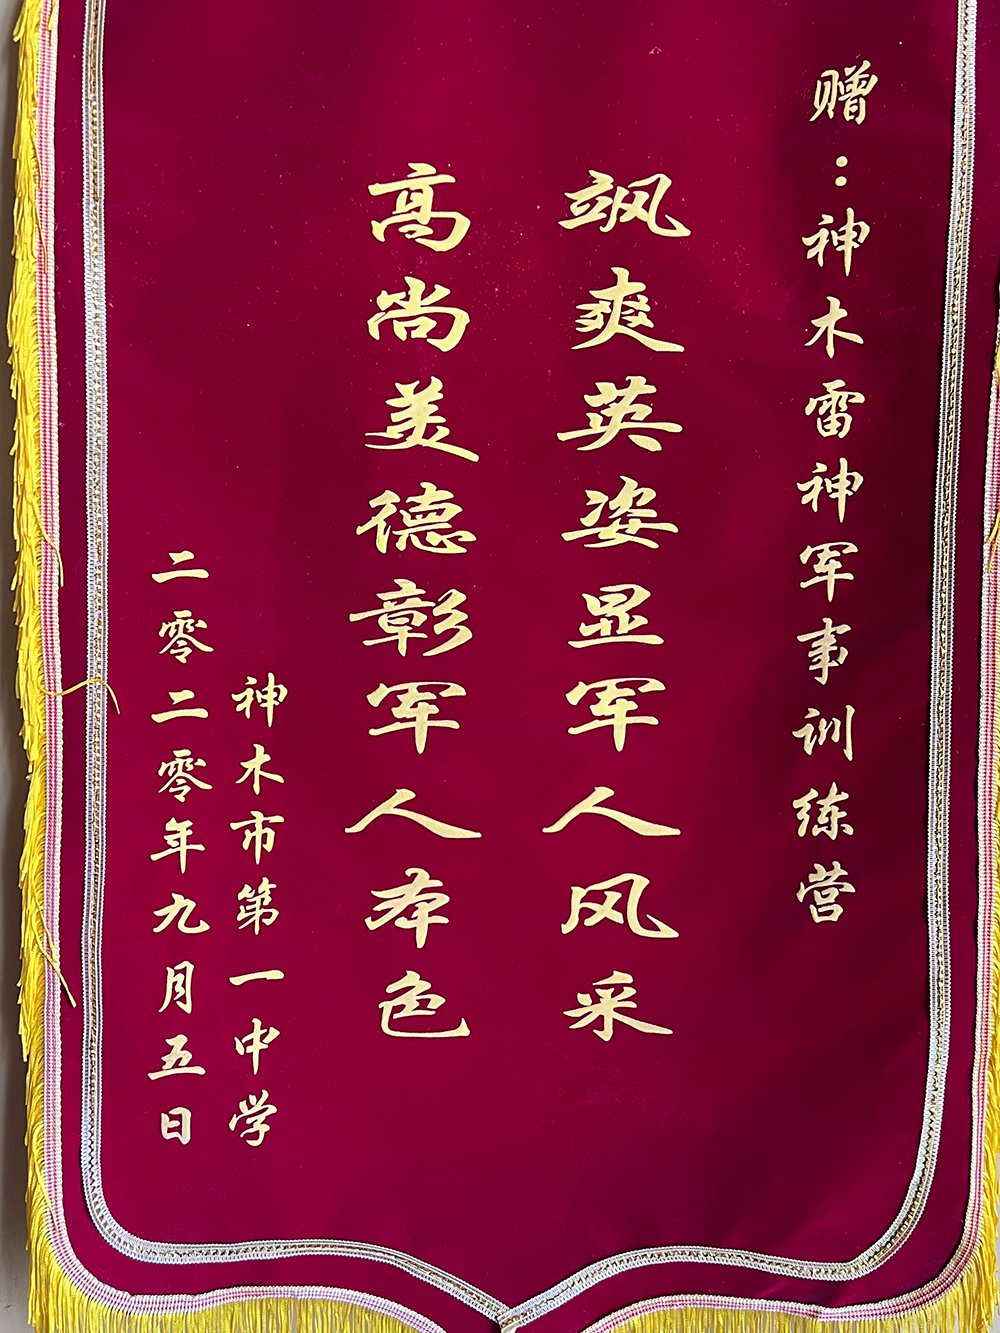 赠：神木雷神军事训练营
飒爽英姿显军人风采
高尚美德彰军人本色
神木市第一中学
二零二零年九月五日